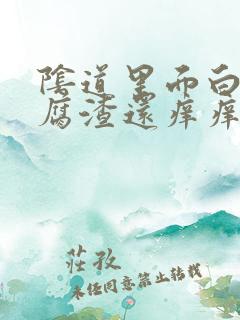 陰道里面白
腐渣還痒痒
莊孜
未經同意禁止轉載